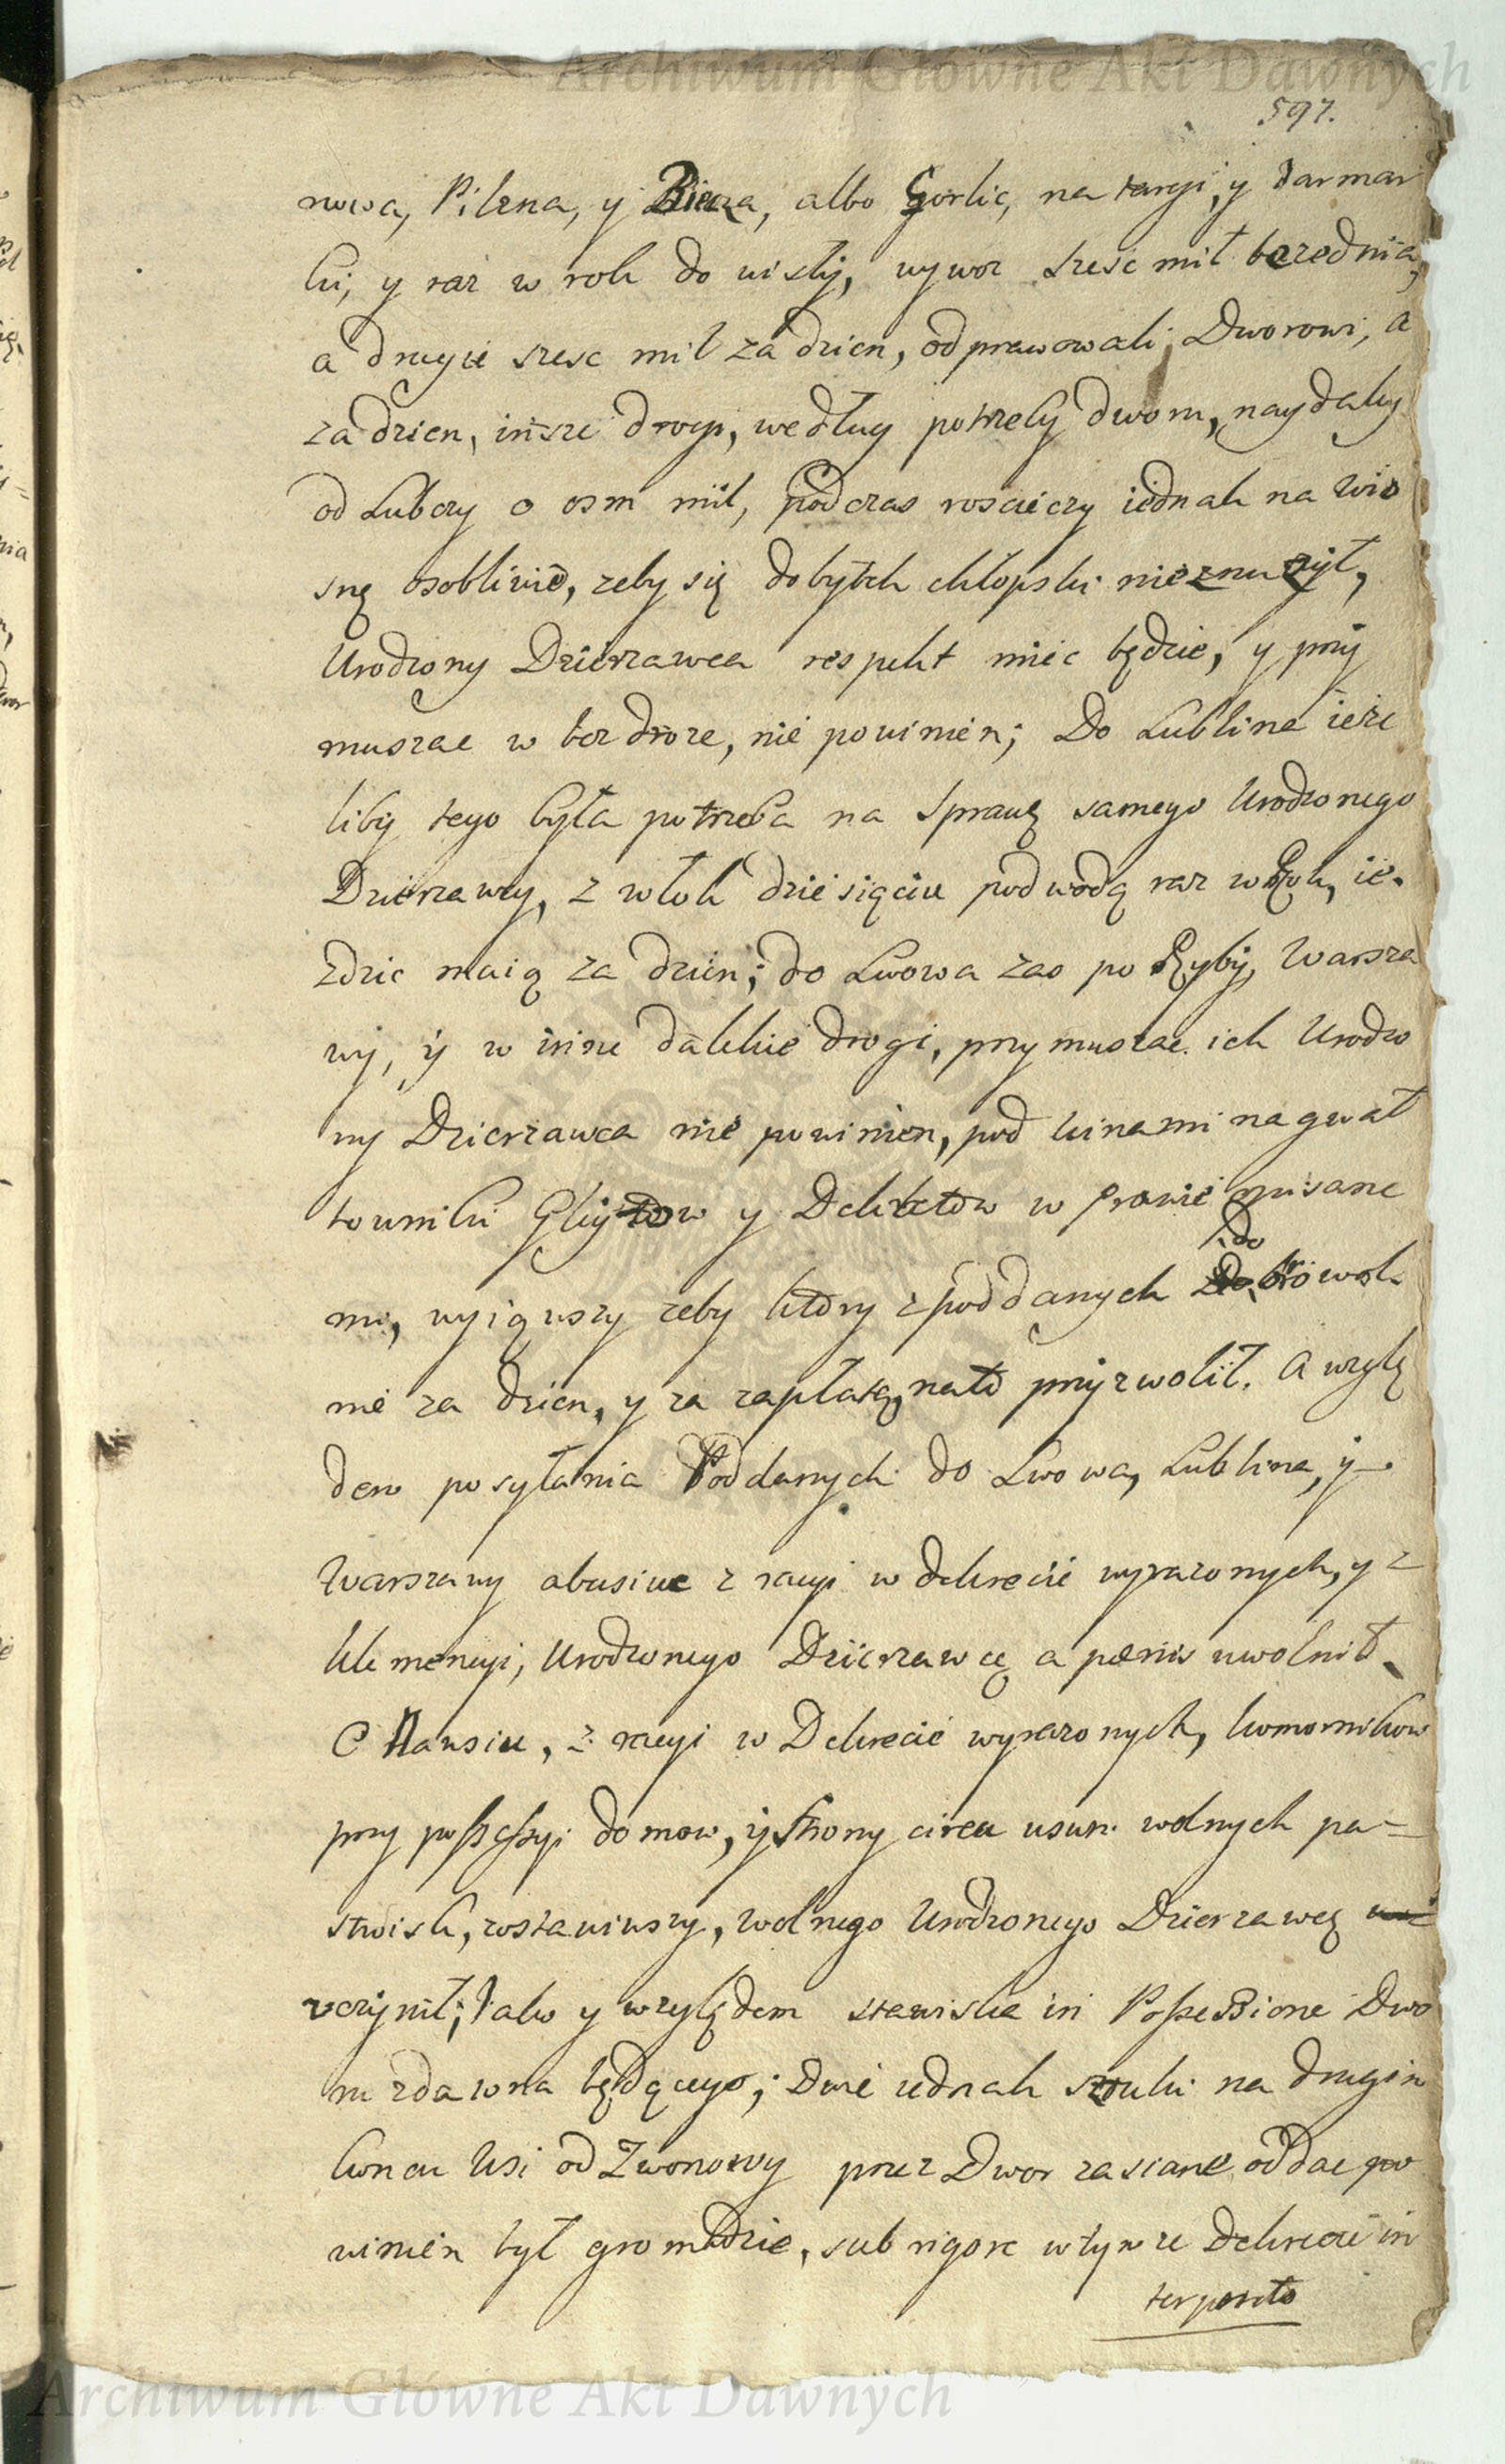 Archiwum Główne Akt Dawnych
597.
nowa, Pilzna, y Biecza, albo Gorlic, na targi, y Jarmar
ki, y raz w rok do wisły, wywoz szesc mil bezednia,
a drugie szesc mil za dzien, odprawowali Dworowi, a
za dzien, insze drogi, według potrzeby dworu, naydaley
od Lubczy o osm mil, podczas rosciczy iednak na wio
snę osobliwie, zeby się dobytek chłopski nieznuzył,
Urodzony Dzierzawca respekt miec będzie, y przy
muszac w tez droze, nie powinien; Do Lublina ieze
liby tego była potrzeba na sprawę samego Urodzonego
Dzierzawcy, z włok dziesięciu podwodą raz w Rok, ie-
zdzic maią za dzien; do Lwowa zas po Ryby, Warsza
wy, y w inne dalekie drogi, przymuszac ich Urodzo
ny Dzierzawca nie powinien, pod winami na gwał
towniki Gleytow y Dekretow w prawie opisane
do
mi, wyiąwszy zeby ktory z poddanych dobrowol
nie za dzien, y za zapłatą, nato przyzwolił. A wzglę
dem posyłania Poddanych do Lwowa, Lublina, y
Warszawy abusive z racyi w dekrecie wyrazonych, y z
klemencyi, Urodzonego Dzierzawcę a pœnis uwolnił.
C Hausiu, z racyi w Dekrecie wyrazonych, komornikow
przy possessyi domow, y strony circa usum wolnych pa=
stwisk, zostawiwszy, wolnego Urodzonego Dzierzawcę
uczynił; Jako y względem stawiska in Possessione Dwo
ru zdawna będącego; Dwie iednak sztuki na drugim
koncu Wsi od Zwonowy przez Dwor zasiane, oddac po
winien był gromadzie, sub rigore w tymze Dekrecie in
terposito
Archiwum Główne Akt Dawnych